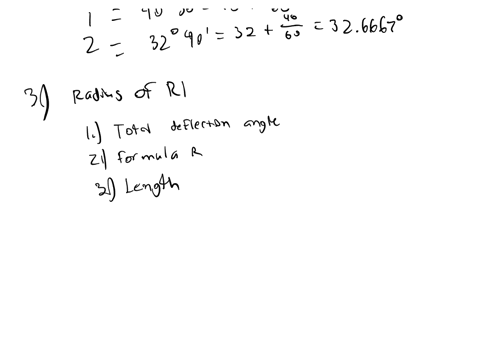 1 =
2 = 32° 40' = 32 + 40/60 = 32.6667°
3.) Radius of R1
1.) Total deflection angle
2.) Formula R
3.) Length